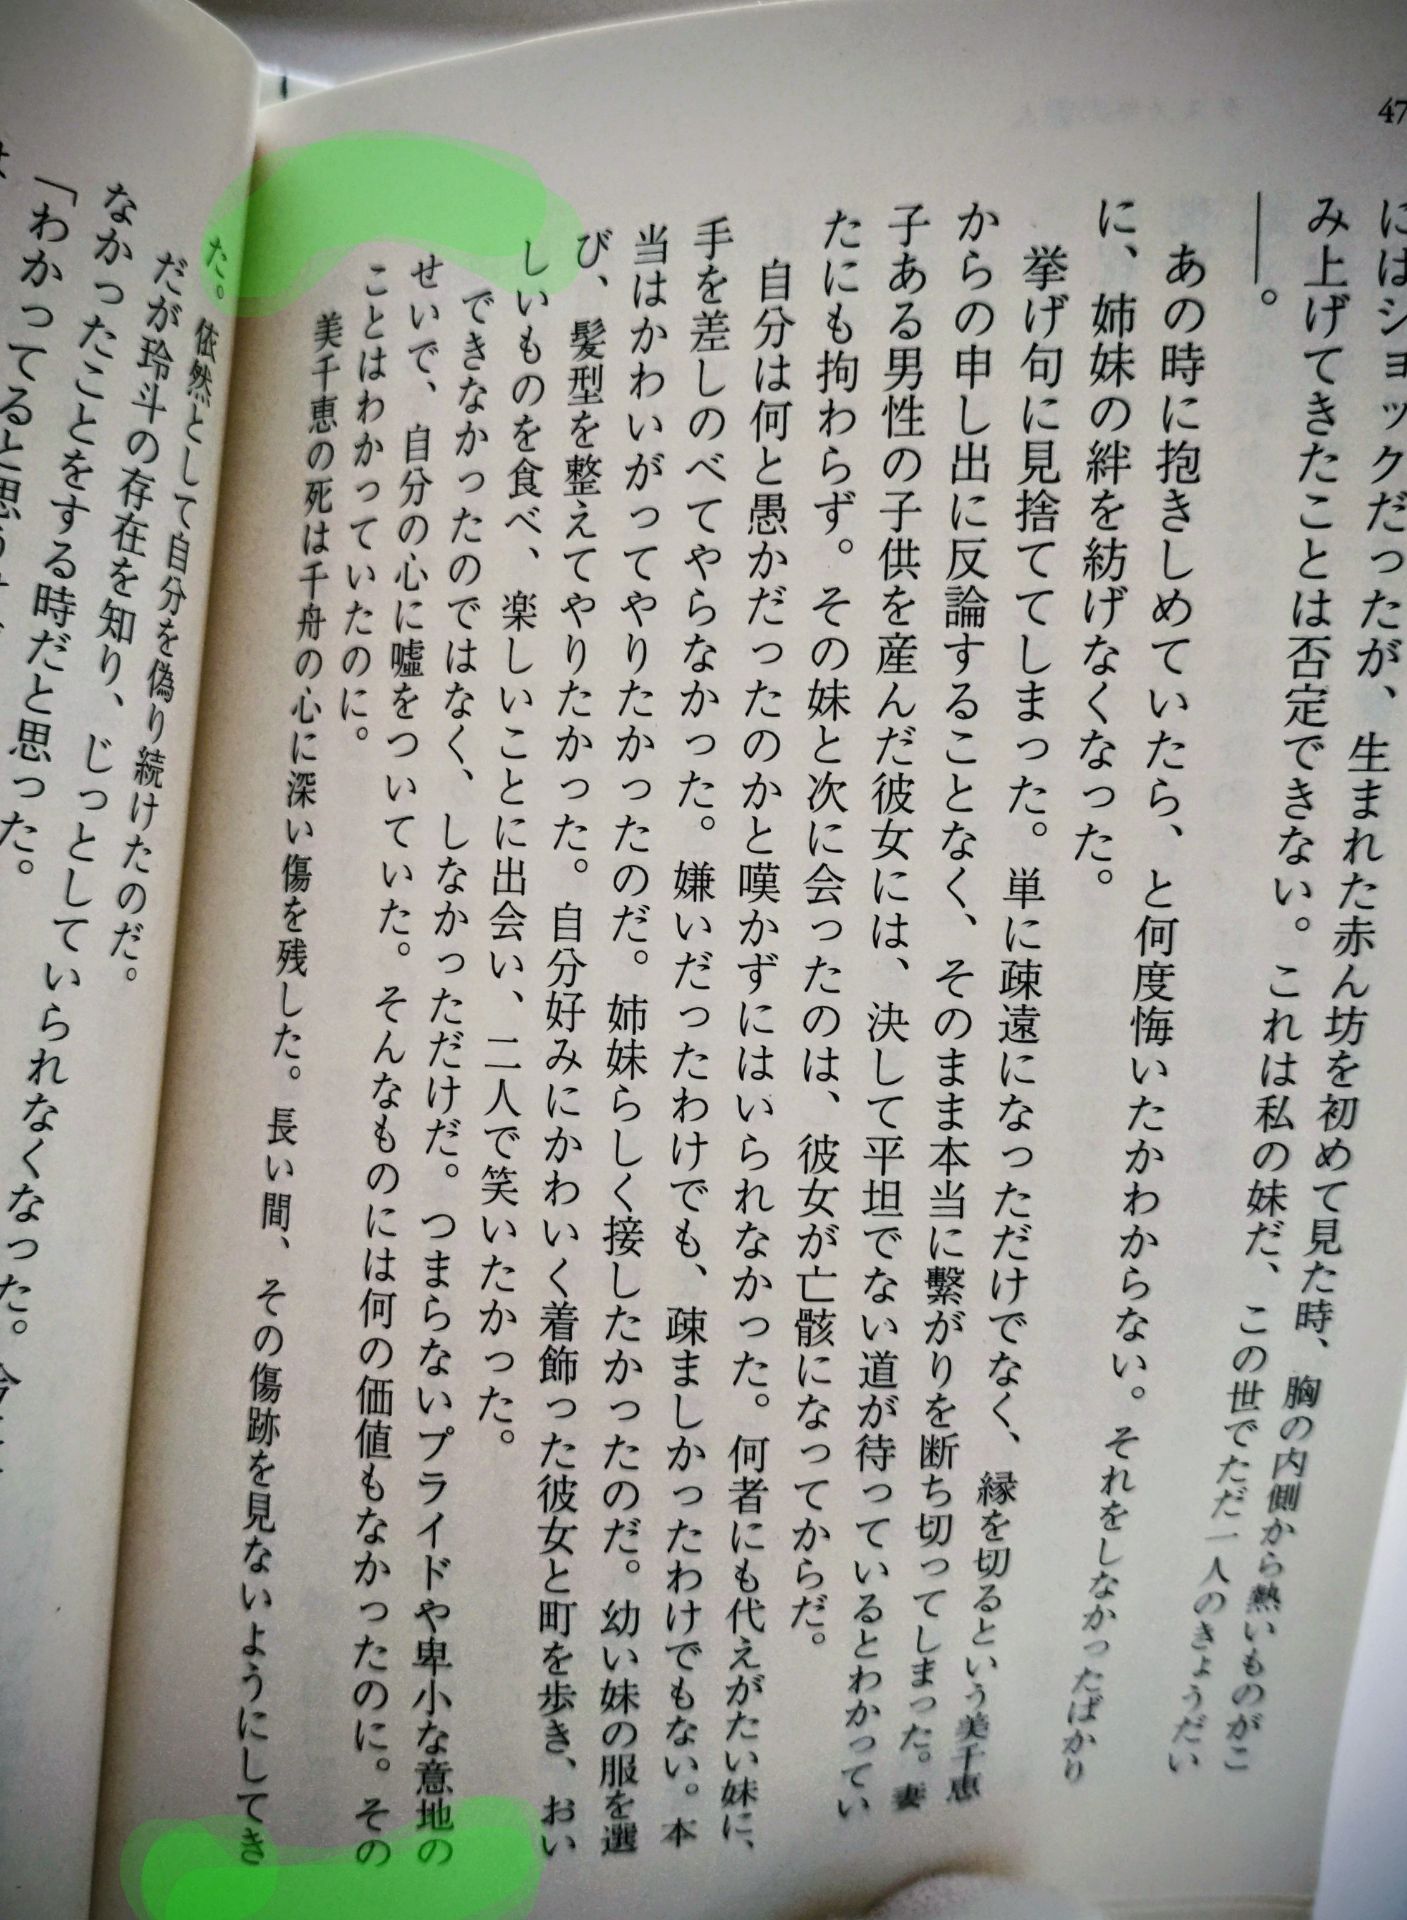 47
にはショックだったが、生まれた赤ん坊を初めて見た時、胸の内側から熱いものがこ
み上げてきたことは否定できない。これは私の妹だ、この世でただ一人のきょうだい
――。
あの時に抱きしめていたら、と何度悔いたかわからない。それをしなかったばかり
に、姉妹の絆を紡げなくなった。
挙げ句に見捨ててしまった。単に疎遠になっただけでなく、縁を切るという美千恵
からの申し出に反論することなく、そのまま本当に繫がりを断ち切ってしまった。妻
子ある男性の子供を産んだ彼女には、決して平坦でない道が待っているとわかってい
たにも拘わらず。その妹と次に会ったのは、彼女が亡骸になってからだ。
自分は何と愚かだったのかと嘆かずにはいられなかった。何者にも代えがたい妹に、
手を差しのべてやらなかった。嫌いだったわけでも、疎ましかったわけでもない。本
当はかわいがってやりたかったのだ。姉妹らしく接したかったのだ。幼い妹の服を選
び、髪型を整えてやりたかった。自分好みにかわいく着飾った彼女と町を歩き、おい
しいものを食べ、楽しいことに出会い、二人で笑いたかった。
できなかったのではなく、しなかっただけだ。つまらないプライドや卑小な意地の
せいで、自分の心に嘘をついていた。そんなものには何の価値もなかったのに。その
ことはわかっていたのに。
美千恵の死は千舟の心に深い傷を残した。長い間、その傷跡を見ないようにしてき
た。依然として自分を偽り続けたのだ。
だが玲斗の存在を知り、じっとしていられなくなった。
なかったことをする時だと思った。
「わかってると思う